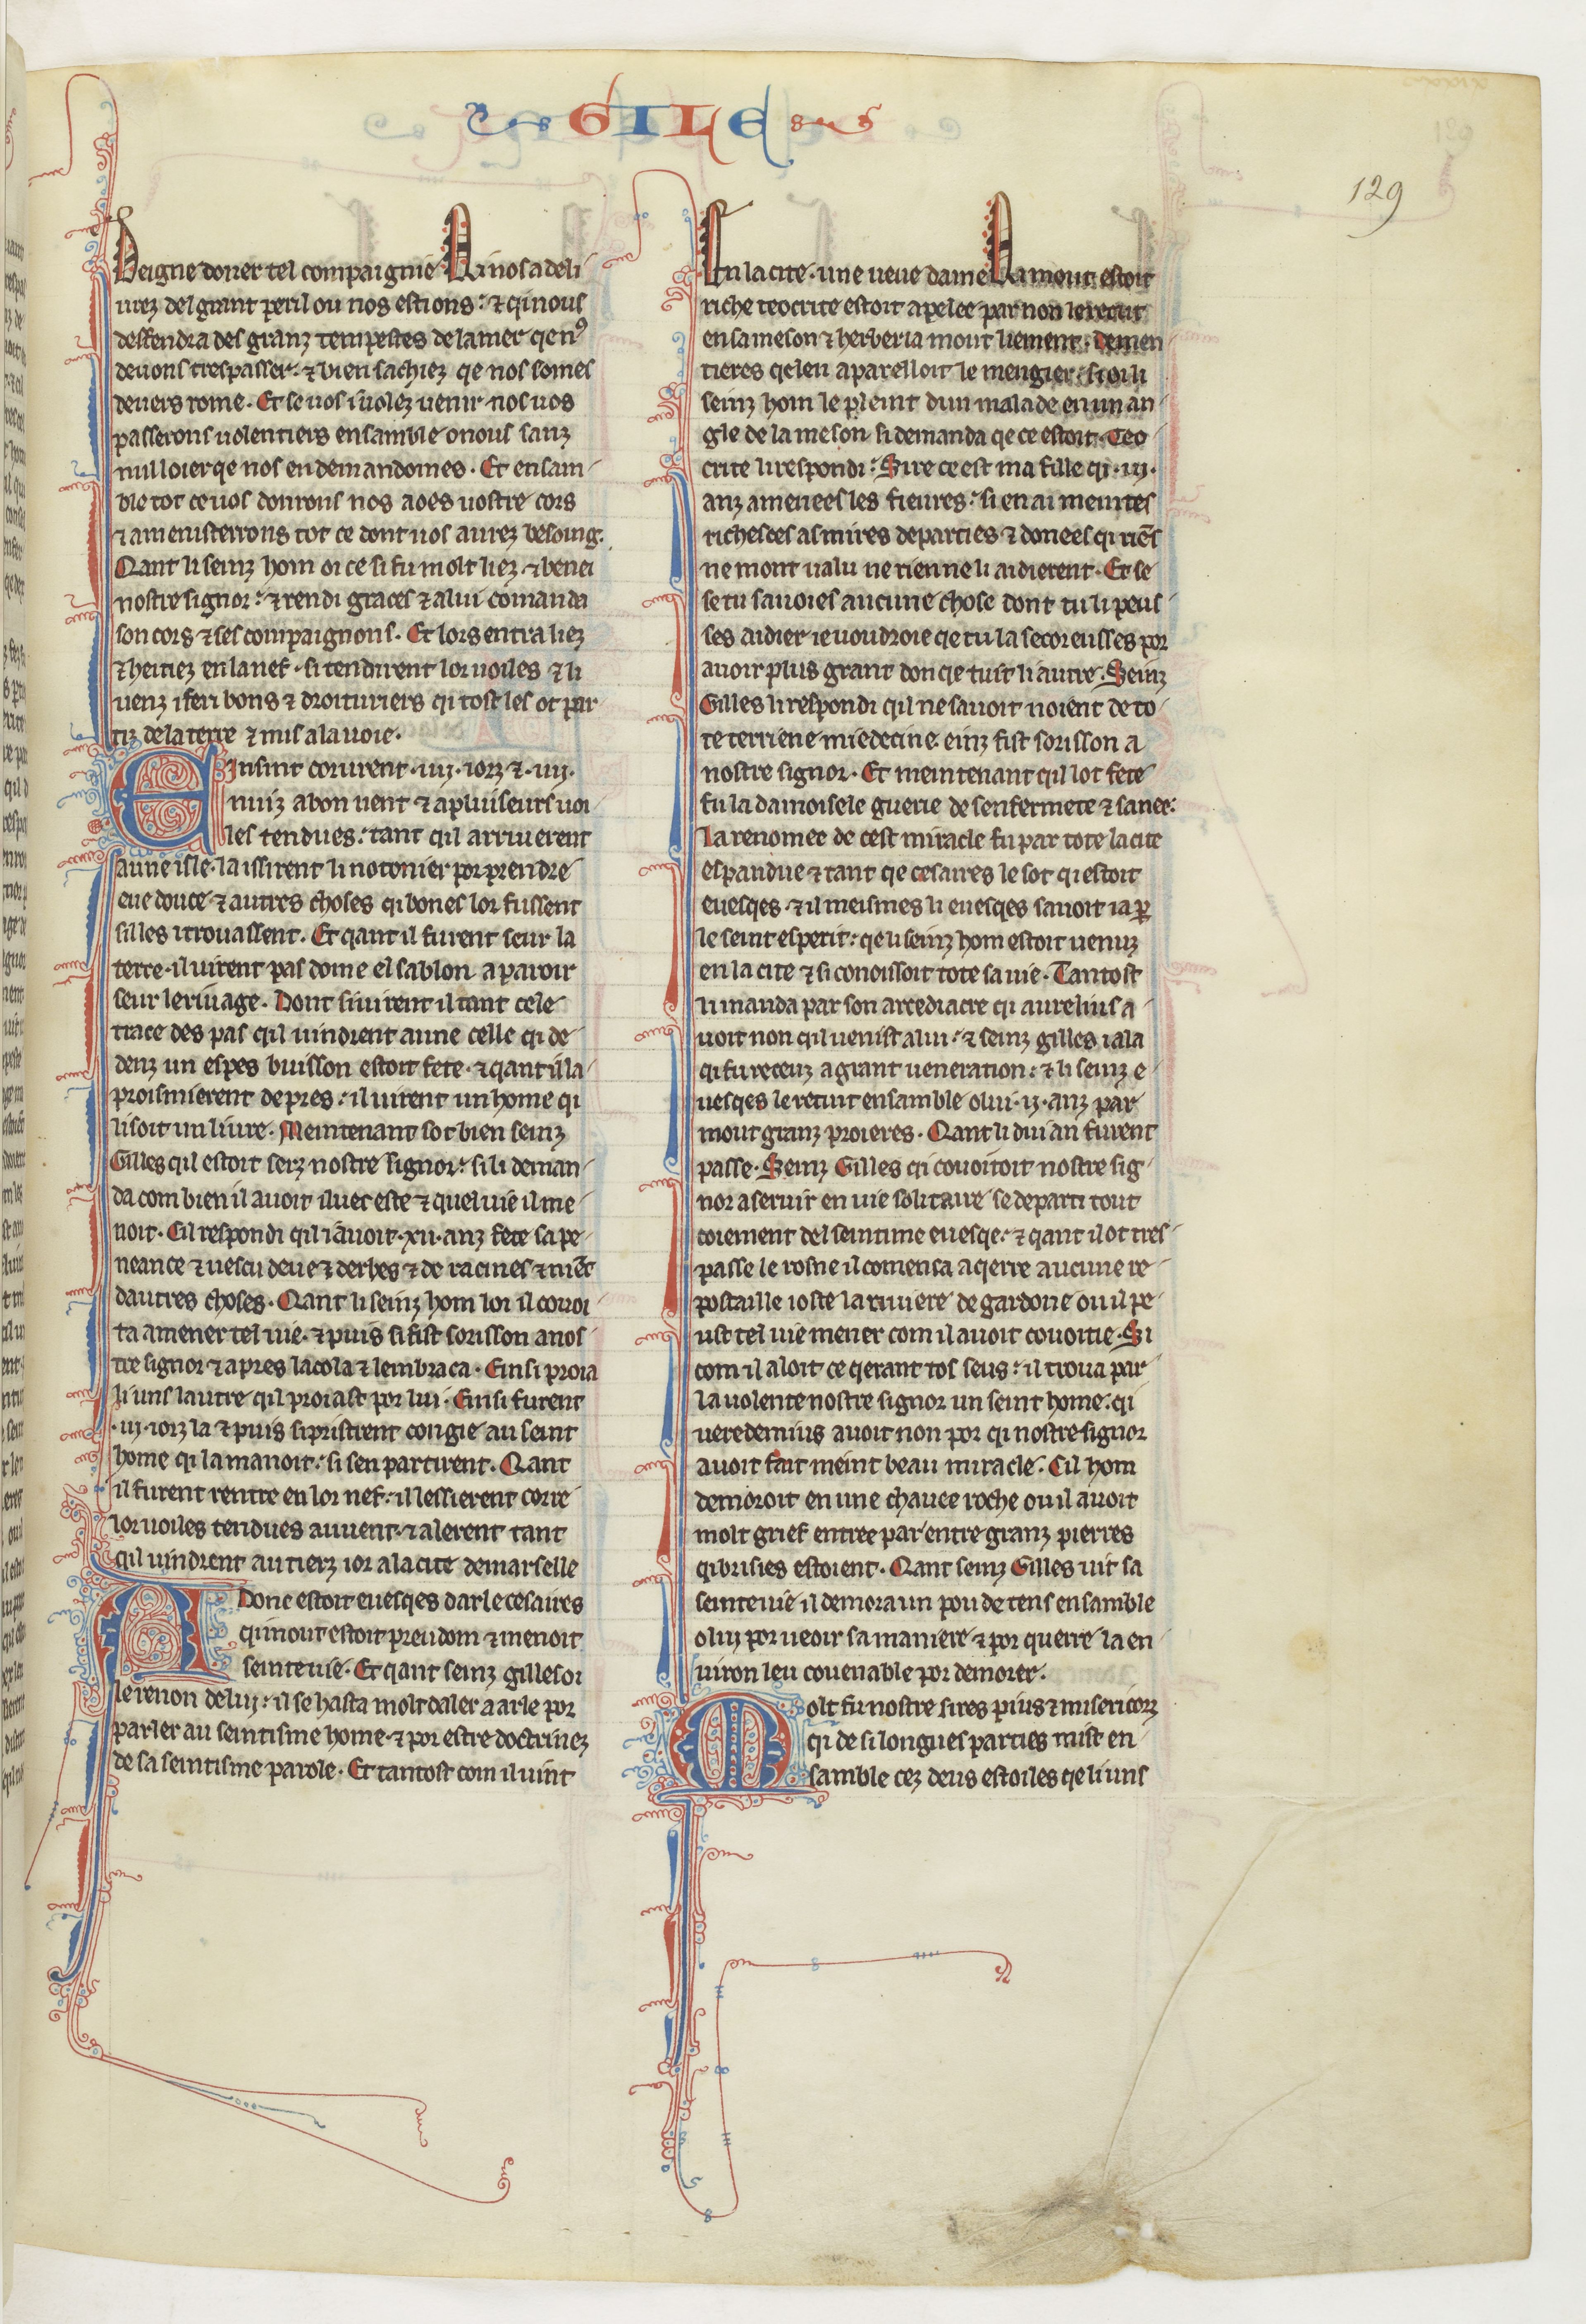 GILE
129
Deigne doner tel compaignie. Qi nos a deli
urez del grant peril ou nos estions: & qi nous
deffendra des granz tempestes de la mer qe nꝰ
deuons trespasser. & bien sachiez qe nos somes
deuers rome. Et se uos i uolez uenir nos uos
passerons uolentiers ensamble o nous sanz
nul loier qe nos en demandomes. Et ensam
ble tot ce uos donrons nos a oes uostre cors
& amenisterrons tot ce dont uos aurez besoing.
Qant li seinz hom oi ce si fu molt liez & benei
nostre signor: & rendi graces & a lui comanda
son cors & ses compaignons. Et lors entra liez
& heitiez en la nef. si tendirent lor uoiles & li
uenz i feri bons & droituriers qi tost les ot par
tiz de la terre & mis a la uoie.
Einsint corurent .iiij. iorz & .iiij.
nuiz a bon uent & a pluiseurs uoi
les tendues: tant qil arriuerent
a une isle. la issirent li notonier por prendre
eue douce & autres choses qi bones lor fussent
sil les i trouassent. Et qant il furent seur la
terre. il uirent pas dome el sablon aparoir
seur le riuage. Dont siuirent il tant cele
trace des pas qil uindrent a une celle qi de
denz un espes buisson estoit fete. & qant il la
proismierent de pres: il uirent un home qi
lisoit un liure. Meintenant sot bien seinz
Gilles qil estoit serz nostre signor: si li deman
da com bien il auoit iluec este & quel uie il me
noit. Cil respondi qil i auoit .xii. anz fete sa pe
neance & uescu deue & derbes & de racines & nie͂t
dautres choses. Qant li seinz hom loi il couoi
ta amener tel uie. & puis si fist sorisson a nos
tre signor & apres lacola & lembraca. Einsi proia
li uns lautre qil proiast por lui. Einsi furent
.iij. iorz la & puis si pristrent congie au seint
home qi la manoit: si sen partirent. Qant
il furent rentre en lor nef: il lessierent corre
lor uoiles tendues au uent. & alerent tant
qil uindrent au tierz ior a la cite de marselle
A Donc estoit euesqes darle cesaires
qi mout estoit preudom & menoit
seinte uie. Et qant seinz gilles oi
le renon de lui: il se hasta molt daler a arle por
parler au seintisme home. & por estre doctrinez
de sa seintisme parole. Et tantost com il uint
En la cite. une ueue dame qi a mout estoit
riche teocrite estoit apelee par non le recut
en sa meson & herberia mout liement. Demen
tieres qe len aparelloit le mengier: si oi li
seinz hom le pleint dun malade en un an
gle de la meson. si demanda qe ce estoit. Teo
crite li respondi: Sire ce est ma fille qi .iij.
anz a menees les fieures: si en ai meintes
richesces as mires departies & donees qi rie͂s
ne mont ualu ne rien ne li aidierent. Et se
se tu sauoies aucune chose dont tu li peus
ses aidier ie uoudroie qe tu la secoreusses por
auoir plus grant don qe tuit li autre. Seinz
Gilles li respondi qil ne sauoit noient de to
te terriene miedecine. einz fist sorisson a
nostre signor. Et meintenant qil lot fete
fu la damoisele guerie de senfermete & sanee:
La renomee de cest miracle fu par tote la cite
espandue & tant qe cesaires le sot qi estoit
euesqes. & il meismes li euesqes sauoit ia ꝑ
le seint esperit: qe li seinz hom estoit uenuz
en la cite & si conoissoit tote sa uie. Tantost
li manda par son arcediacre qi aurelius a
uoit non qil uenist a lui: & seinz gilles i ala
qi fu receuz a grant ueneration: & li seinz e
uesqes le retint ensamble o lui .ij. anz par
mout granz proieres. Qant li dui an furent
passe. Seinz Gilles qi couoitoit nostre sig
nor a seruir en uie solitaire se departi tout
coiement del seintime euesqe. & qant il ot tres
passe le rosne il comenca a qerre aucune re
postaille ioste la riuiere de gardone ou il pe
ust tel uie mener com il auoit couoitie. Si
com il aloit ce qerant tos seus: il troua par
la uolente nostre signor un seint home: qi
ueredemius auoit non por qi nostre signor
auoit fait meint beau miracle. Cil hom
demoroit en une chauee roche ou il auoit
molt grief entree par entre granz pierres
qi brisies estoient. Qant seinz Gilles uit sa
seinte uie il demora un pou de tens ensamble
o luj por ueoir sa maniere & por querre la en
uiron leu couenable por demorer.
Molt fu nostre sires pius & misericorz
qi de si longues parties mist en
samble cez deus estoiles qe li uns